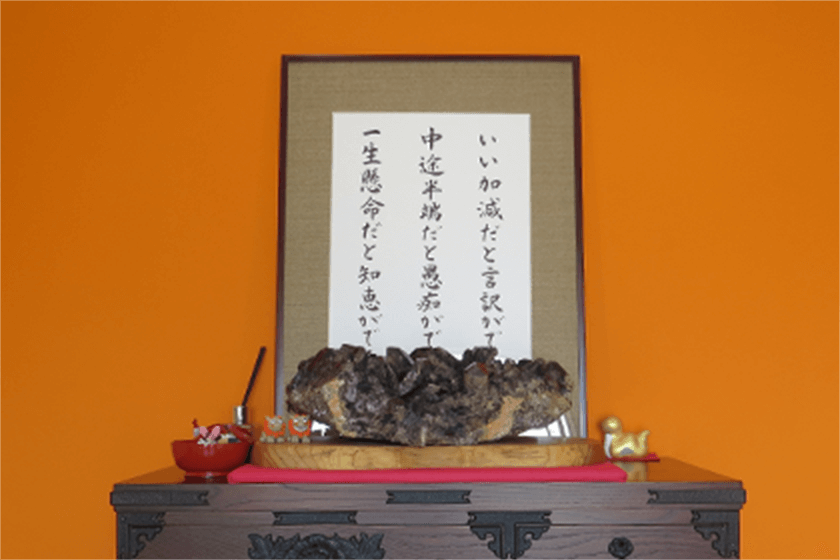 いい加減だと言訳がで
中途半端だと愚痴がで
一生懸命だと知恵がで